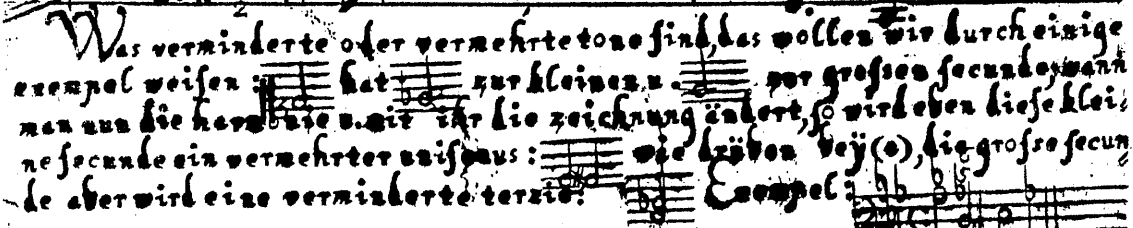 Was verminderte oder vermehrte tone sind, das wollen wir durch einige
exempel weisen: hat zur kleinen u. zur grossen secunde; wann
man nun die harmonie u. mit ihr die zeichnung ändert, so wird eben diese klei-
ne secunde ein vermehrter unisonus: wie drüben beÿ (*), die grosse secun-
de aber wird eine verminderte terzie: Exempel: